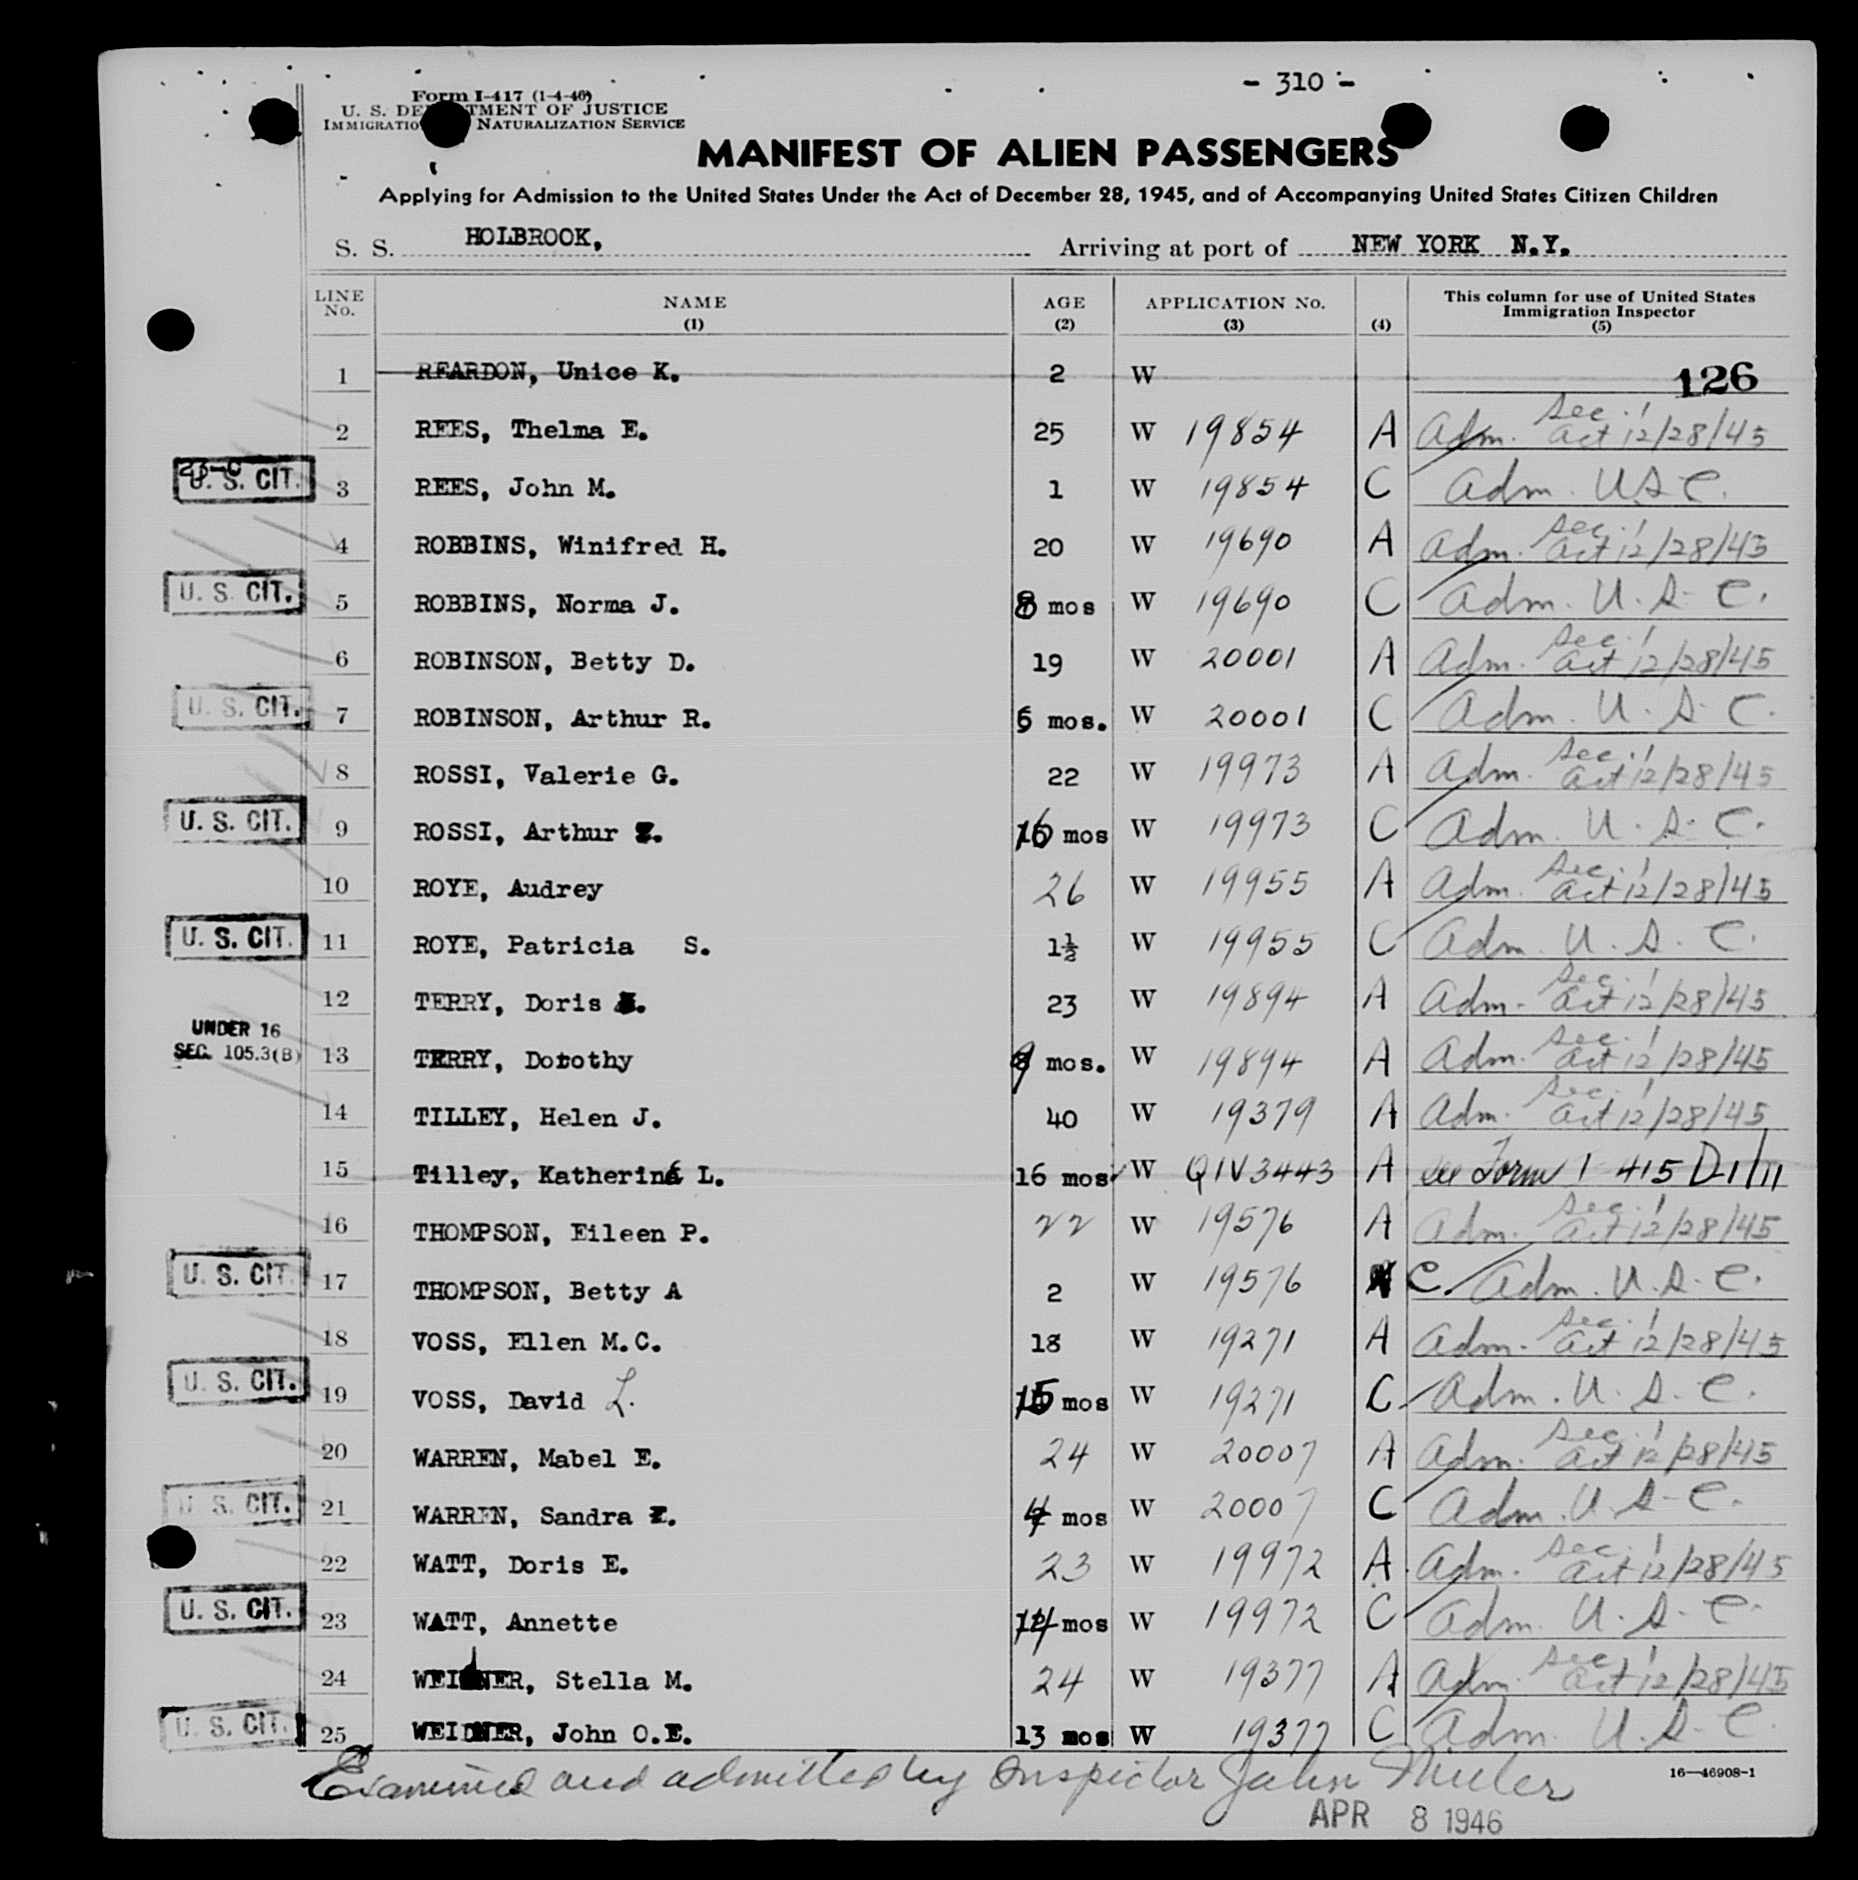 - 310 -
Form I-417 (1-4-46)
U. S. DE TMENT OF JUSTICE
IMMIGRATIO NATURALIZATION SERVICE
MANIFEST OF ALIEN PASSENGERS
Applying for Admission to the United States Under the Act of December 28, 1945, and of Accompanying United States Citizen Children
S. S. HOLBROOK, Arriving at port of NEW YORK N.Y.
LINE No. NAME (1) AGE (2) APPLICATION No. (3) (4) This column for use of United States Immigration Inspector (5)
1 REARDON, Unice K. 2 W 126
2 REES, Thelma E. 25 W 19854 A Adm. Sec. 1 Act 12/28/45
U. S. CIT. 3 REES, John M. 1 W 19854 C Adm. USC.
4 ROBBINS, Winifred H. 20 W 19690 A Adm. Sec. 1 Act 12/28/45
U. S. CIT. 5 ROBBINS, Norma J. 8 mos W 19690 C Adm. U.S.C.
6 ROBINSON, Betty D. 19 W 20001 A Adm. Sec. 1 Act 12/28/45
U. S. CIT. 7 ROBINSON, Arthur R. 6 mos. W 20001 C Adm. U.S.C.
8 ROSSI, Valerie G. 22 W 19973 A Adm. Sec. 1 Act 12/28/45
U. S. CIT. 9 ROSSI, Arthur 16 mos W 19973 C Adm. U.S.C.
10 ROYE, Audrey 26 W 19955 A Adm. Sec. 1 Act 12/28/45
U. S. CIT. 11 ROYE, Patricia S. 1½ W 19955 C Adm. U.S.C.
12 TERRY, Doris 23 W 19894 A Adm. Sec. 1 Act 12/28/45
UNDER 16
SEC. 105.3(B) 13 TERRY, Dorothy 9 mos. W 19894 A Adm. Sec. 1 Act 12/28/45
14 TILLEY, Helen J. 40 W 19379 A Adm. Sec. 1 Act 12/28/45
15 Tilley, Katherine L. 16 mos W QIV3443 A see Form I 415 D-1/11
16 THOMPSON, Eileen P. 22 W 19576 A Adm. Sec. 1 Act 12/28/45
U. S. CIT. 17 THOMPSON, Betty A 2 W 19576 C Adm. U.S.C.
18 VOSS, Ellen M.C. 18 W 19271 A Adm. Sec. 1 Act 12/28/45
U. S. CIT. 19 VOSS, David L. 15 mos W 19271 C Adm. U.S.C.
20 WARREN, Mabel E. 24 W 20007 A Adm. Sec. 1 Act 12/28/45
U. S. CIT. 21 WARREN, Sandra 4 mos W 20007 C Adm. U.S.C.
22 WATT, Doris E. 23 W 19972 A Adm. Sec. 1 Act 12/28/45
U. S. CIT. 23 WATT, Annette 14 mos W 19972 C Adm. U.S.C.
24 WEIDNER, Stella M. 24 W 19377 A Adm. Sec. 1 Act 12/28/45
U. S. CIT. 25 WEIDNER, John O.E. 13 mos W 19377 C Adm. U.S.C.
Examined and admitted by Inspector John Miller
16—46908-1
APR 8 1946